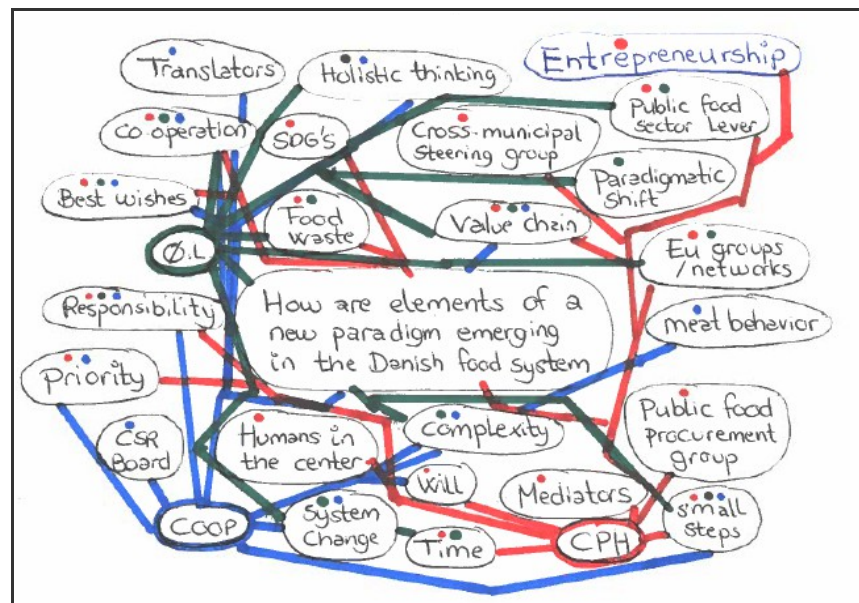 Translators
Holistic thinking
Entrepreneurship
Co operation
SDG's
Cross-municipal
Steering group
Public food
sector Lever
Best wishes
Food
waste
Value chain
Paradigmatic
shift
Ø.L
Eu groups
/networks
Responsibility
How are elements of a
new paradigm emerging
in the Danish food system
meat behavior
Priority
CSR
Board
Humans in
the center
Complexity
Public food
procurement
group
Will
Mediators
COOP
System
Change
Time
CPH
small
steps